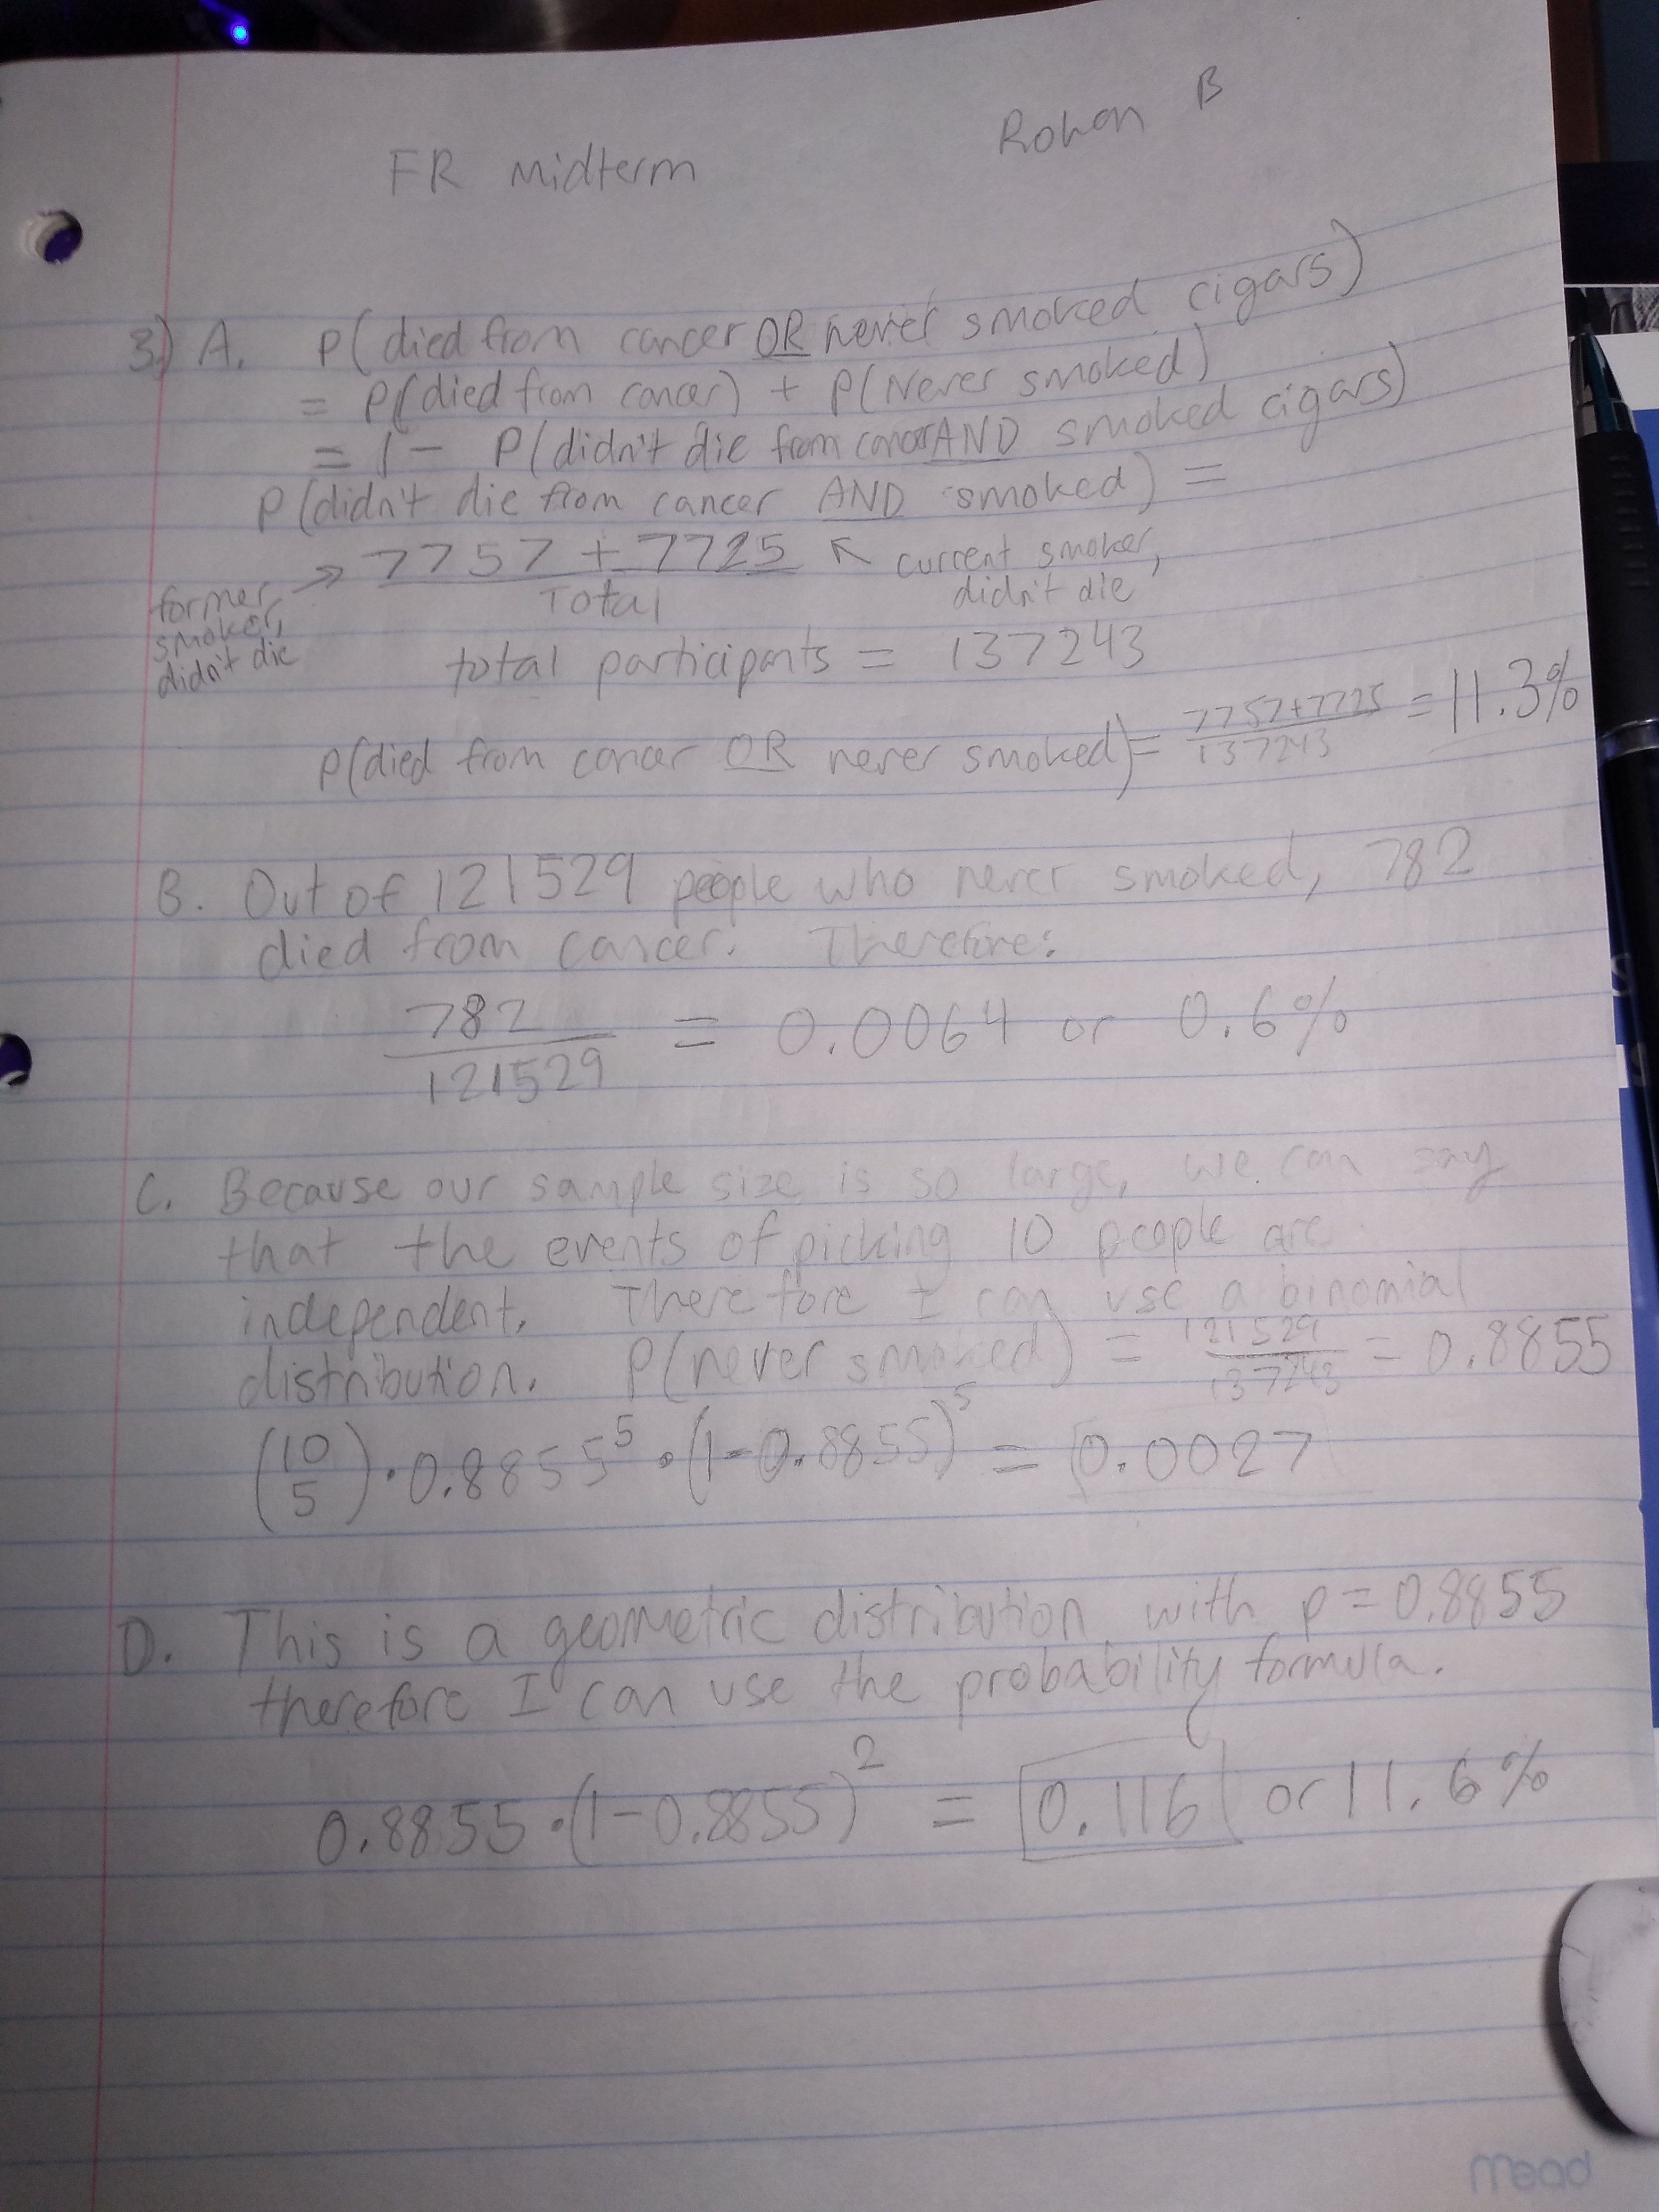 Rohan B
FR Midterm
3.) A. P(died from cancer OR never smoked cigars)
= P(died from cancer) + P(Never smoked)
= 1 - P(didn't die from cancer AND smoked cigars)
P(didn't die from cancer AND smoked) =
7757 + 7725 ↖ current smoker,
didn't die
former → Total
smoker,
didn't die
total participants = 137243
P(died from cancer OR never smoked) = 7757+7725 / 137243 = 11.3%
B. Out of 121529 people who never smoked, 782
died from cancer. Therefore:
782 / 121529 = 0.0064 or 0.6%
C. Because our sample size is so large, we can say
that the events of picking 10 people are
independent. Therefore I can use a binomial
distribution. P(never smoked) = 121529 / 137243 = 0.8855
(10 5) · 0.8855⁵ · (1-0.8855)⁵ = 0.0027
D. This is a geometric distribution with p = 0.8855
therefore I can use the probability formula.
0.8855 · (1-0.8855)² = 0.116 or 11.6%
Mead